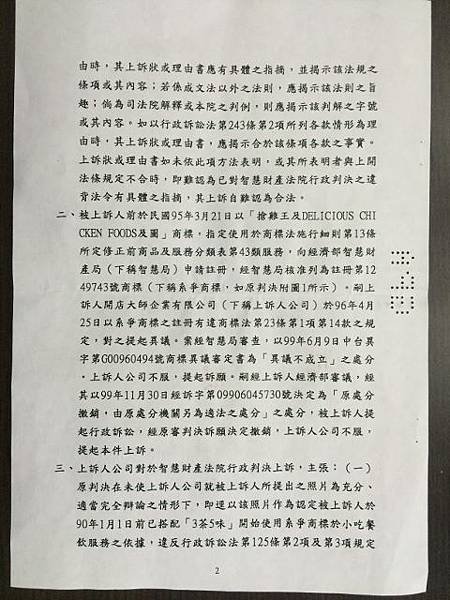 由時，其上訴狀或理由書應有具體之指摘，並揭示該法規之
條項或其內容；若係成文法以外之法則，應揭示該法則之旨
趣；倘為司法院解釋或本院之判例，則應揭示該判解之字號
或其內容。如以行政訴訟法第243條第2項所列各款情形為理
由時，其上訴狀或理由書，應揭示合於該條項各款之事實。
上訴狀或理由書如未依此項方法表明，或其所表明者與上開
法條規定不合時，即難認為已對智慧財產法院行政判決之違
背法令有具體之指摘，其上訴自難認為合法。
二、被上訴人前於民國95年3月21日以「搶雞王及DELICIOUS CHI
CKEN FOODS及圖」商標，指定使用於商標法施行細則第13條
所定修正前商品及服務分類表第43類服務，向經濟部智慧財
產局（下稱智慧局）申請註冊，經智慧局核准列為註冊第12
49743號商標（下稱系爭商標，如原判決附圖1所示）。嗣上
訴人開店大師企業有限公司（下稱上訴人公司）於96年4月
25日以系爭商標之註冊有違商標法第23條第1項第14款之規
定，對之提起異議。案經智慧局審查，以99年6月9日中台異
字第G00960494號商標異議審定書為「異議不成立」之處分
，上訴人公司不服，提起訴願。嗣經上訴人經濟部審議，經
其以99年11月30日經訴字第09906045730號決定為「原處分
撤銷，由原處分機關另為適法之處分」之處分，被上訴人提
起行政訴訟，經原審判決訴願決定撤銷，上訴人公司不服，
提起本件上訴。
三、上訴人公司對於智慧財產法院行政判決上訴，主張：（一）
原判決在未使上訴人公司就被上訴人所提出之照片為充分、
適當完全辯論之情形下，即逕以該照片作為認定被上訴人於
90年1月1日前已搭配「3茶5味」開始使用系爭商標於小吃餐
飲服務之依據，違反行政訴訟法第125條第2項及第3項規定
2